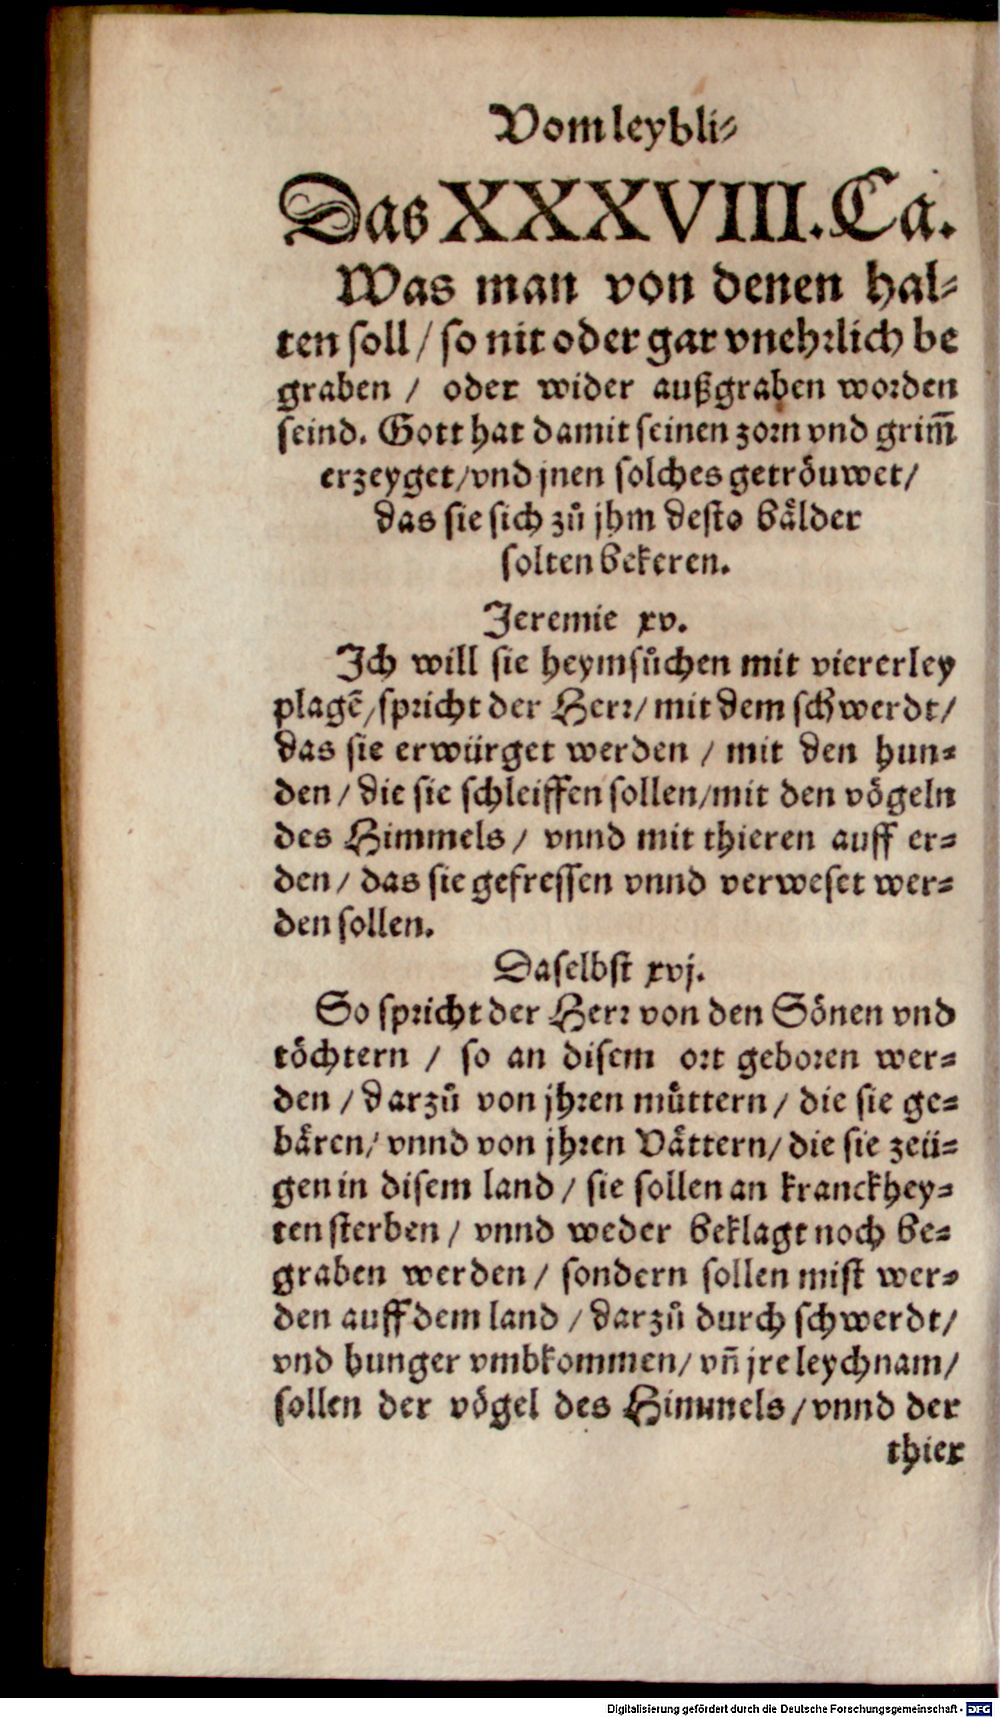 Vom leybli⸗
Das XXXVIII. Ca.
Was man von denen hal⸗
ten soll / so nit oder gar vnehrlich be
graben / oder wider außgraben worden
seind. Gott hat damit seinen zorn vnd grim̃
erzeyget / vnd jnen solches getröuwet /
das sie sich zů jhm desto bälder
solten bekeren.
Jeremie xv.
Ich will sie heymsůchen mit viererley
plagẽ / spricht der Herr / mit dem schwerdt /
das sie erwürget werden / mit den hun⸗
den / die sie schleiffen sollen / mit den vögeln
des Himmels / vnnd mit thieren auff er⸗
den / das sie gefressen vnnd verweset wer⸗
den sollen.
Daselbst xvj.
So spricht der Herr von den Sönen vnd
töchtern / so an disem ort geboren wer⸗
den / darzů von jhren müttern / die sie ge⸗
bären / vnnd von jhren Vättern / die sie zeü⸗
gen in disem land / sie sollen an kranckhey⸗
ten sterben / vnnd weder beklagt noch be⸗
graben werden / sondern sollen mist wer⸗
den auff dem land / darzů durch schwerdt /
vnd hunger vmbkommen / vñ jre leychnam /
sollen der vögel des Himmels / vnnd der
thier
Digitalisierung gefördert durch die Deutsche Forschungsgemeinschaft - DFG